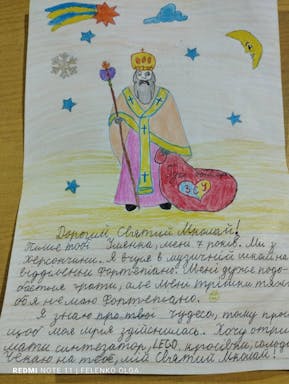 ЗСУ
Дорогий Святий Миколай!
Пише тобі Уляна, мені 7 років. Ми з
Херсонщини. Я вчуся в музичній школі на
відділенні фортепіано. Мені дуже подо-
бається грати, але мені трішки тяжко
бо я не маю фортепіано.
Я знаю про твої чудеса, тому прошу
щоб моя мрія здійснилась. Хочу отри-
мати синтезатор, LEGO, кросівки, солодо
чекаю на тебе, мій Святий Миколай!
REDMI NOTE 11 | FELENKO OLGA